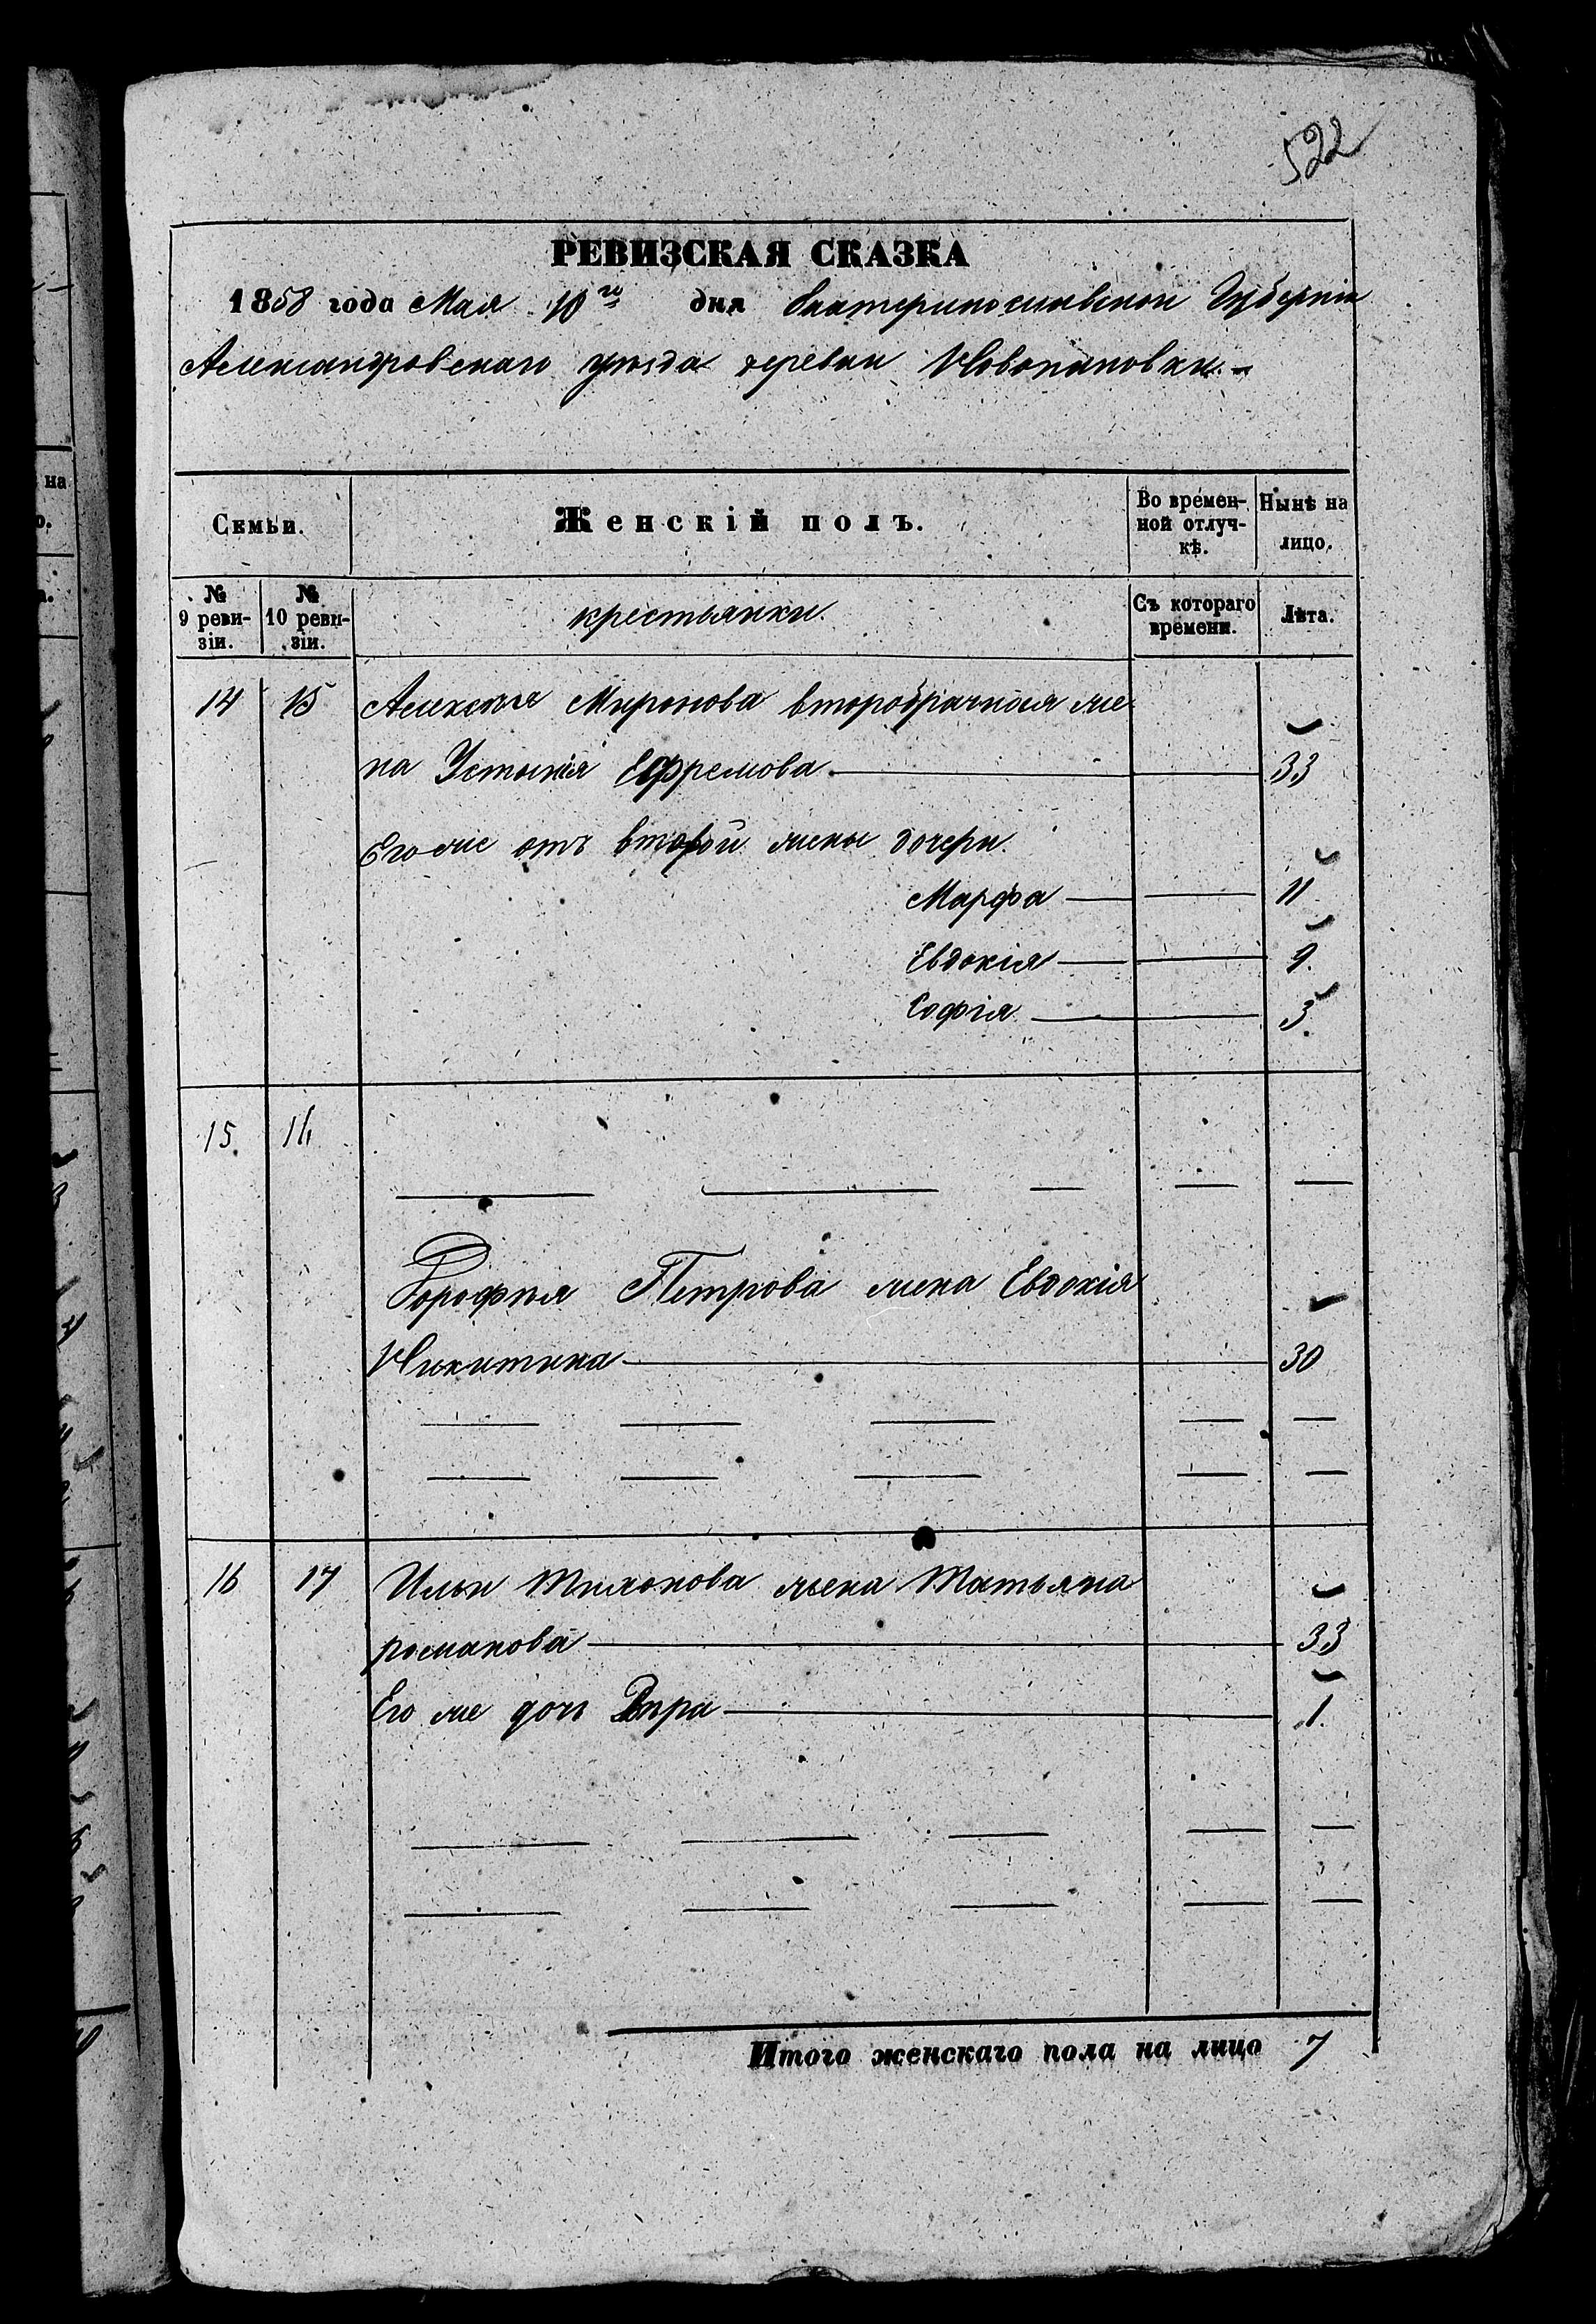 522
РЕВИЗСКАЯ СКАЗКА
1858 года Мая 10го дня Екатеринославской Губерніи
Александровскаго уѣзда деревни Новопановки
Семьи. Женскій полъ. Во времен- Нынѣ на
ной отлуч- лицо.
кѣ.
№ № крестьянки. Съ котораго Лѣта.
9 реви- 10 реви- времени.
зіи. зіи.
14 15 Алексѣя Миронова второбрачная же
на Устинія Ефремова 33
Его же отъ второй жены дочери
Марфа 11
Евдокія 9.
Софія 3.
15. 16
Дорофѣя Петрова жена Евдокія
Никитина 30
16 17 Ильи Тихонова жена Татьяна
романова 33
Его же дочь Вѣра 1.
Итого женскаго пола на лицо 7
на
о.
а.